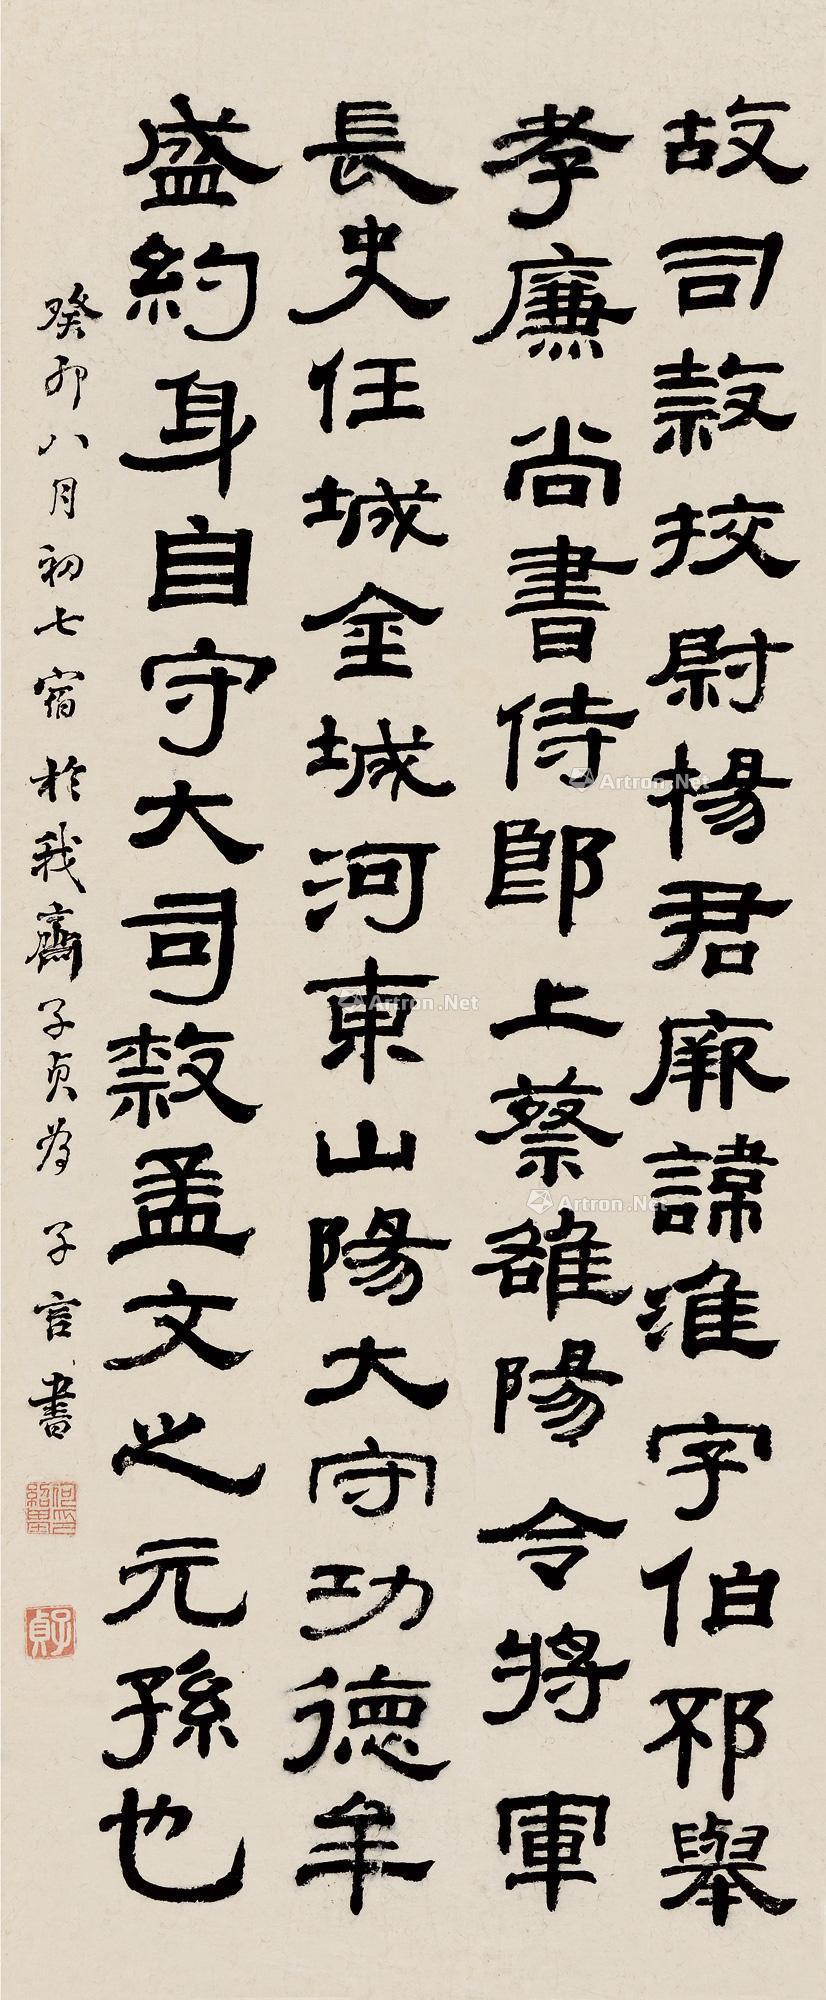 故司隸挍尉楊君厥諱淮字伯邳舉
孝廉尚書侍郎上蔡雒陽令將軍
長史任城金城河東山陽大守功德牟
盛約身自守大司隸孟文之元孫也
癸卯八月初七宿於我齋子貞為子言書
何紹基印
子貞
Artron.Net
Artron.Net
Artron.Net